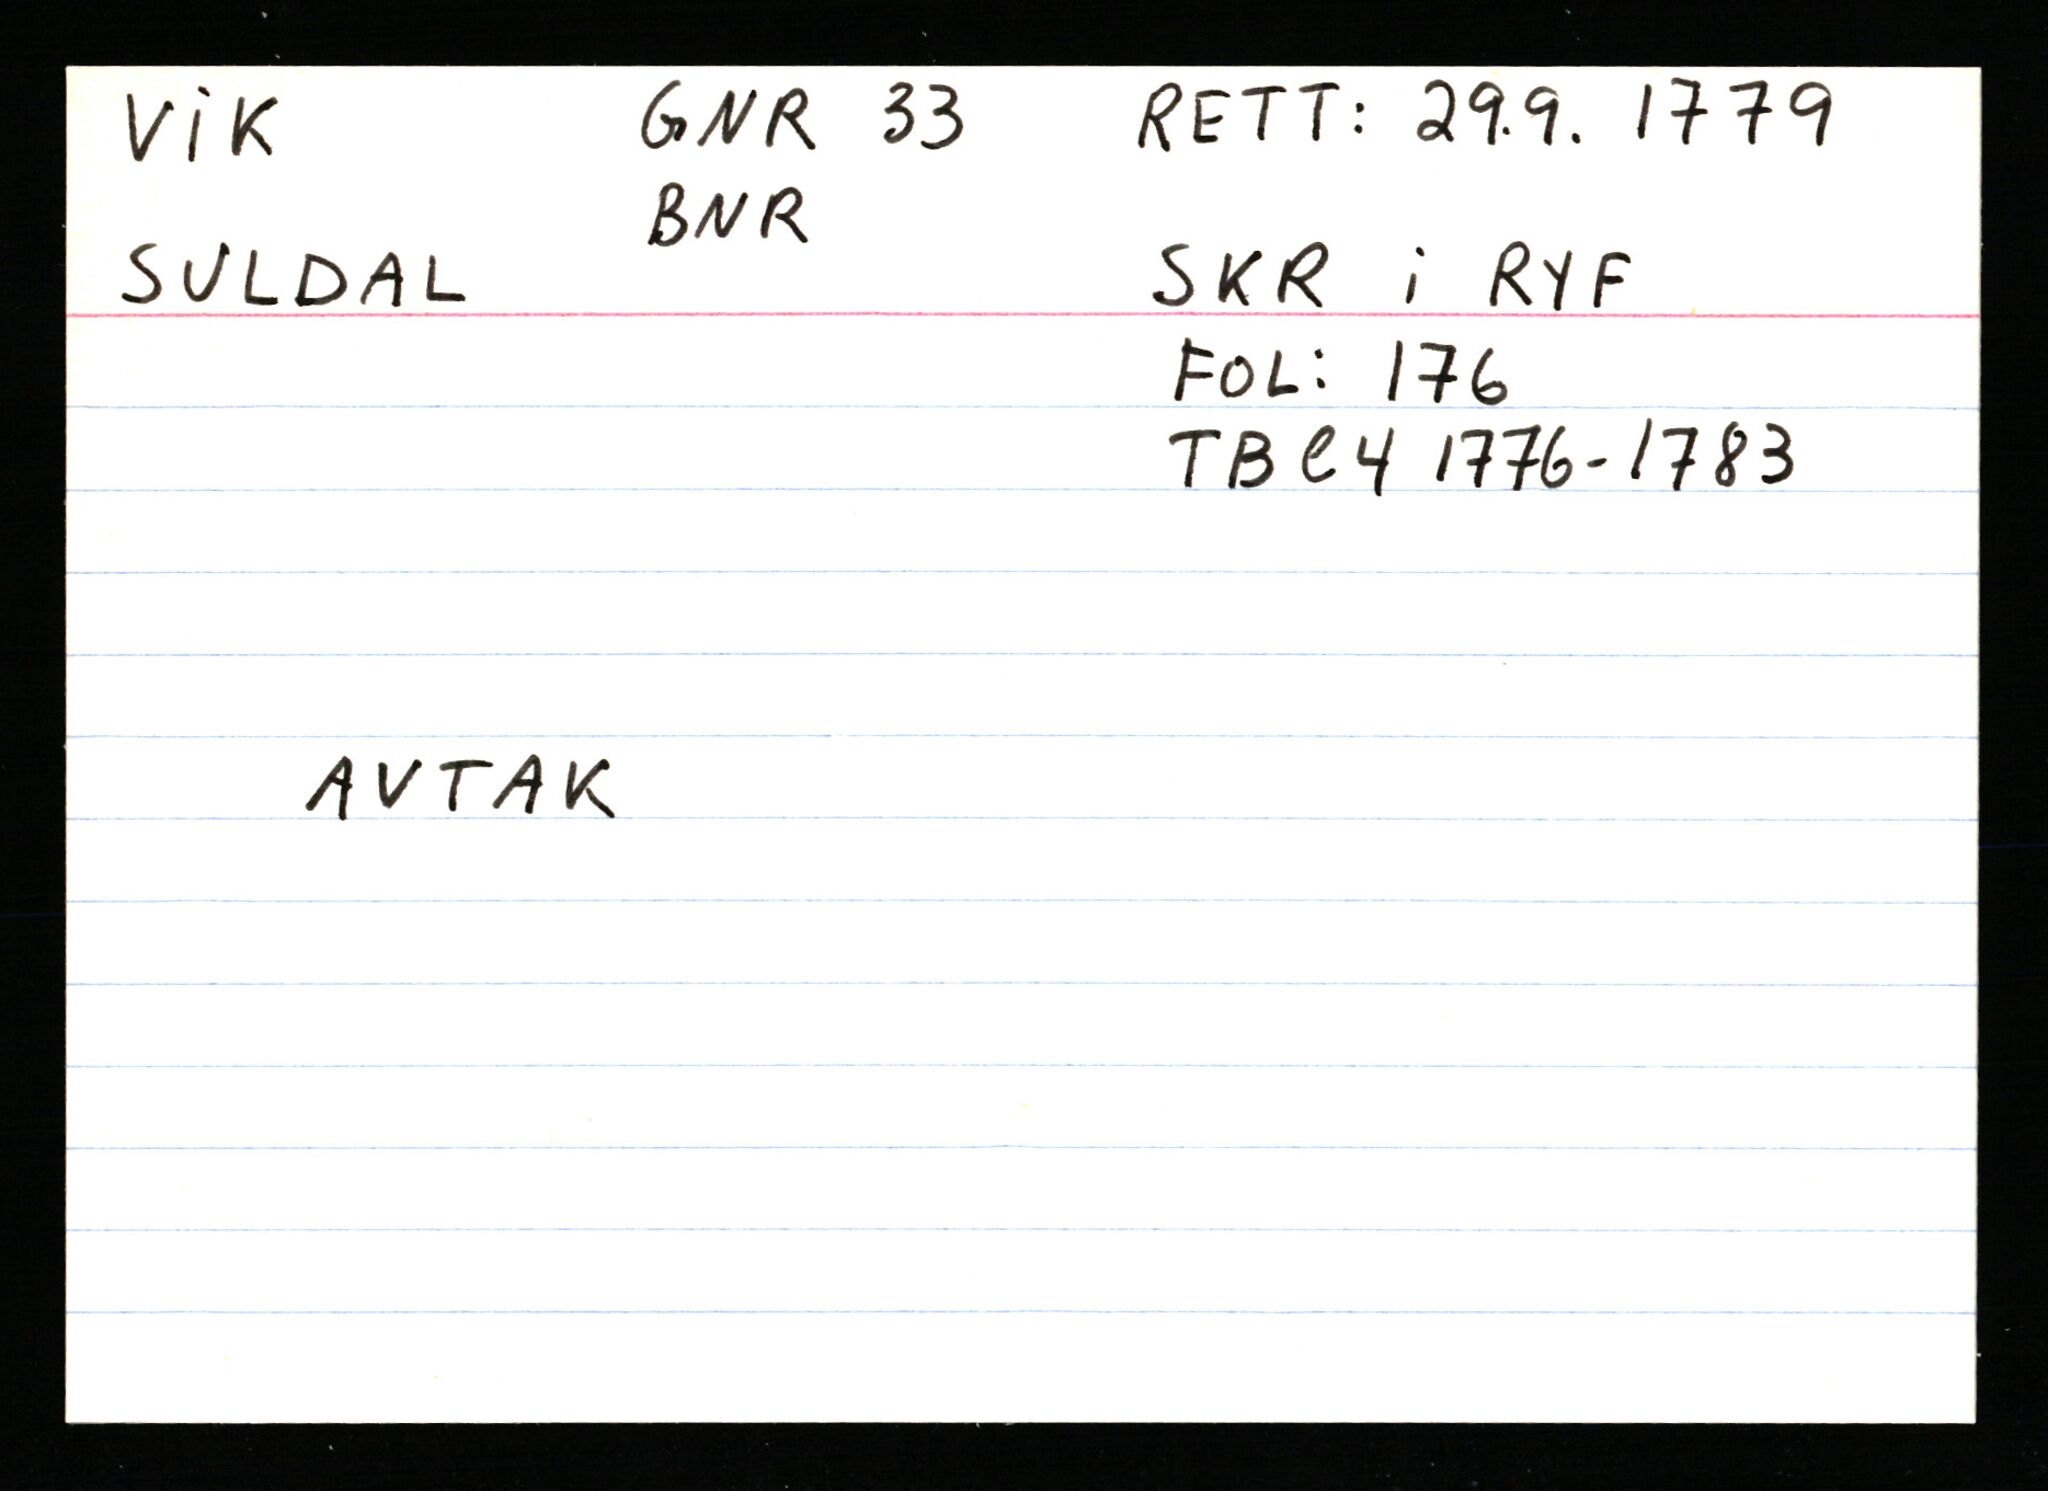 VIK GNR 33 RETT: 29.9. 1779
BNR
SULDAL SKR i RYF
FOL: 176
TB C4 1776-1783
AVTAK